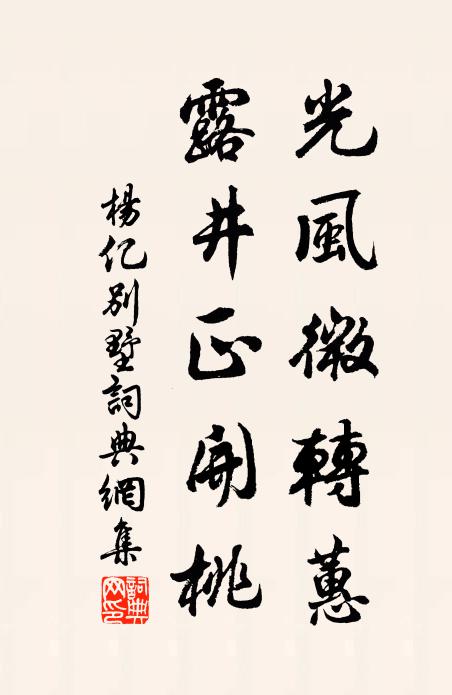 光風微轉蕙
露井正開桃
楊亿別墅詞典網集
詞典网印